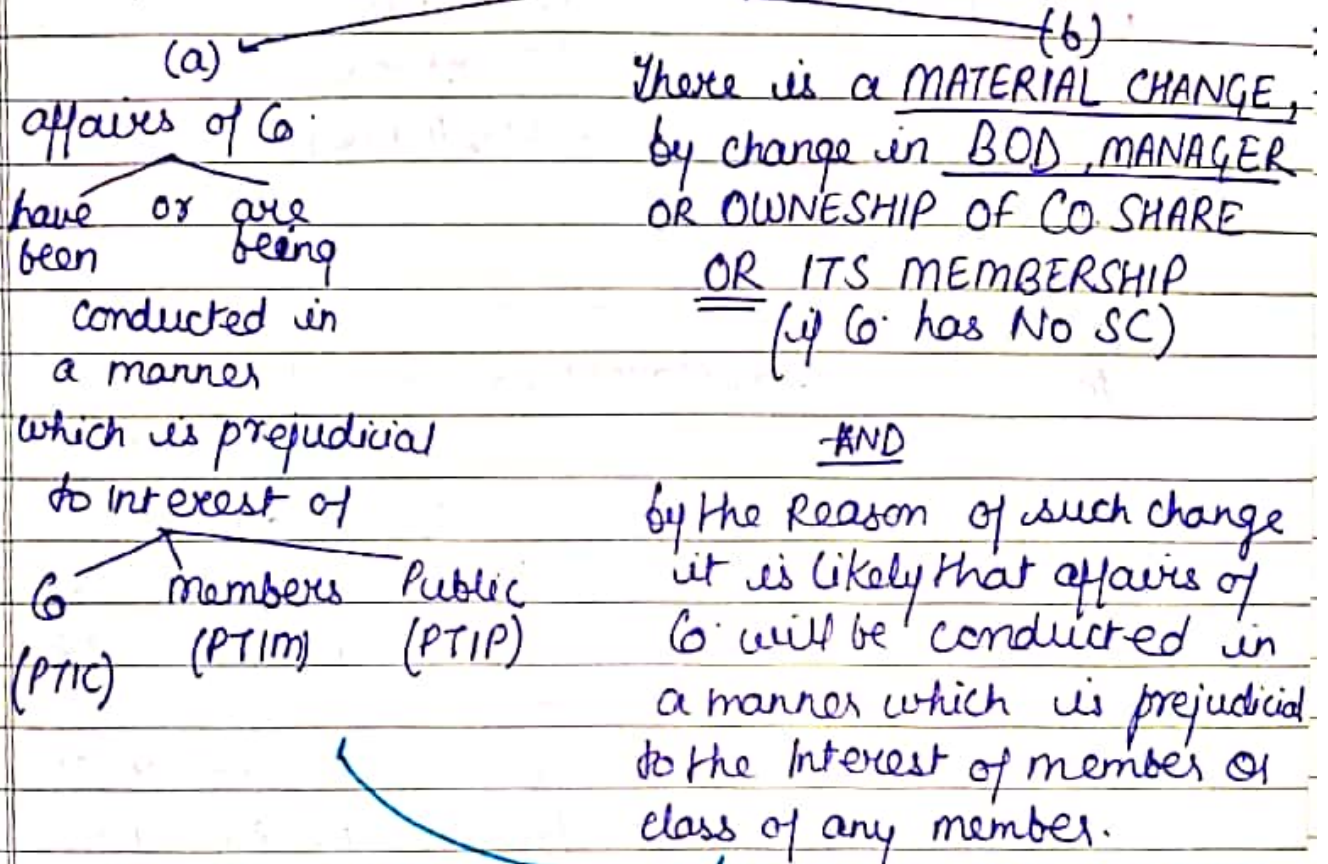 (a)
affairs of Co.
have or are
been being
conducted in
a manner
which is prejudicial
to Interest of
Co members Public
(PTIC) (PTIM) (PTIP)
(b)
There is a MATERIAL CHANGE,
by change in BOD, MANAGER
OR OWNESHIP OF CO. SHARE
OR ITS MEMBERSHIP
(if Co. has No SC)
AND
by the Reason of such change
it is likely that affairs of
Co. will be conducted in
a manner which is prejudicial
to the Interest of member or
class of any member.